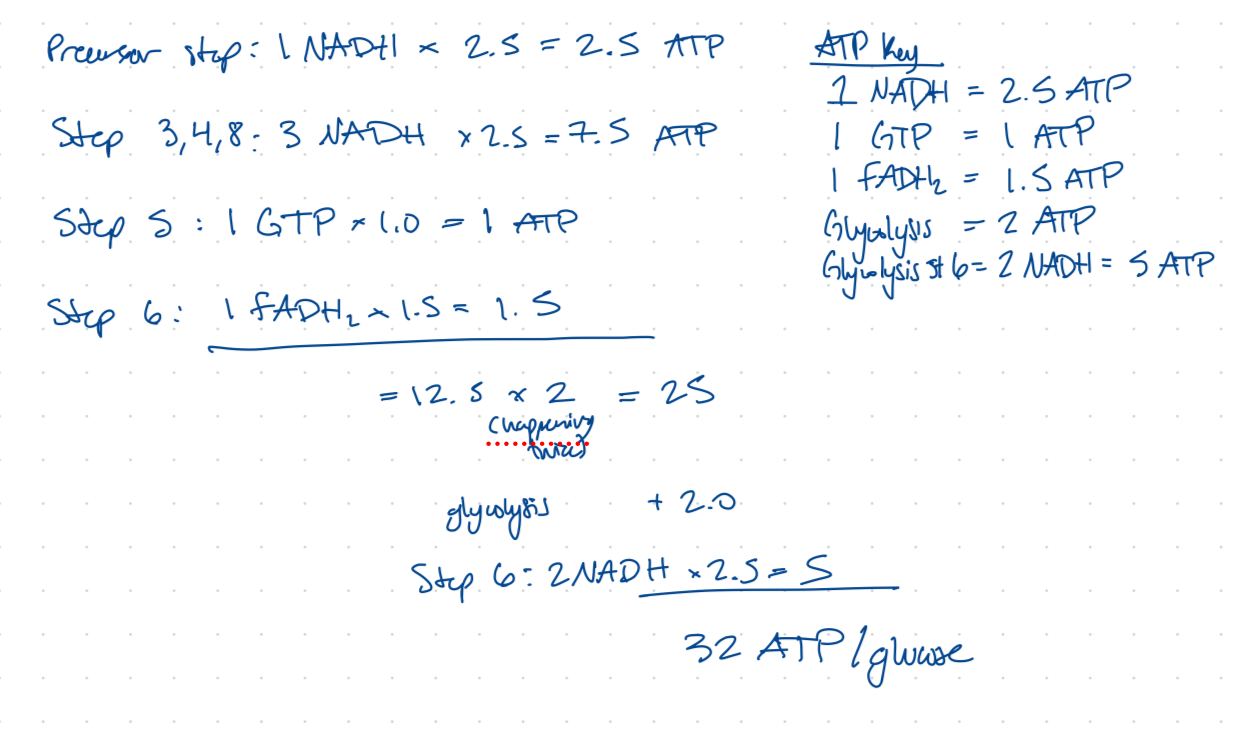 Precursor step: 1 NADH × 2.5 = 2.5 ATP
Step 3,4,8: 3 NADH × 2.5 = 7.5 ATP
Step 5: 1 GTP × 1.0 = 1 ATP
Step 6: 1 FADH₂ × 1.5 = 1.5
= 12.5 × 2 = 25
(happening
twice)
glycolysis + 2.0
Step 6: 2 NADH × 2.5 = 5
32 ATP/glucose
ATP Key
1 NADH = 2.5 ATP
1 GTP = 1 ATP
1 FADH₂ = 1.5 ATP
Glycolysis = 2 ATP
Glycolysis st 6 = 2 NADH = 5 ATP